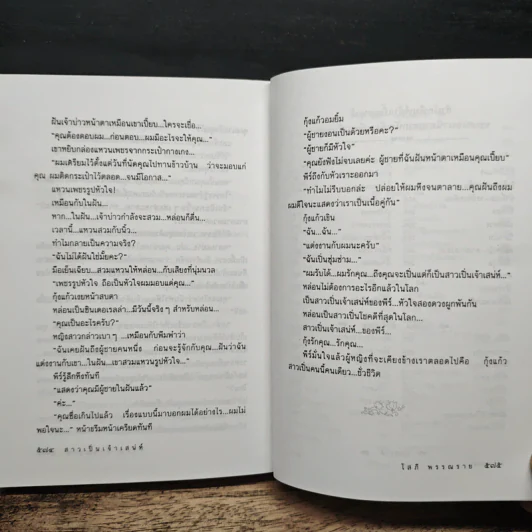 ฝันเจ้าบ่าวหน้าตาเหมือนเขาเปี๊ยบ...ใครจะเชื่อ...
"คุณต้องตอบผม...ก่อนตอบ...ผมมีอะไรจะให้คุณ..."
เขาหยิบกล่องแหวนเพชรจากกระเป๋ากางเกง...
"ผมเตรียมไว้ตั้งแต่วันที่นัดคุณไปทานข้าวบ้าน ว่าจะมอบแก่
คุณ ผมติดกระเป๋าไว้ตลอด...จนมีโอกาส..."
แหวนเพชรรูปหัวใจ!
เหมือนกับในฝัน...
หาก...ในฝัน...เจ้าบ่าวกำลังจะสวม...หล่อนก็ตื่น...
เวลานี้...แหวนสวมกับนิ้ว...
ทำไมกลายเป็นความจริง?
"ฉันไม่ได้ฝันใช่มั้ยคะ?"
มือเย็นเฉียบ...สวมแหวนให้หล่อน...กับเสียงที่นุ่มนวล
"เพชรรูปหัวใจ ถือเป็นหัวใจผมมอบแด่คุณ..."
กุ้งแก้วเงยหน้าสบตา
หล่อนเป็นซินเดอเรลล่า...มีวันนี้จริง ๆ สำหรับหล่อน...
"คุณเป็นอะไรครับ?"
หญิงสาวกล่าวเบา ๆ ...เหมือนกับพึมพำว่า
"ฉันเคยฝันถึงผู้ชายคนหนึ่ง ก่อนจะรู้จักกับคุณ...ฝันว่าฉัน
แต่งงานกับเขา...ในฝัน...เขาสวมแหวนรูปหัวใจ..."
พีร์รู้สึกหึงทันที
"แสดงว่าคุณมีผู้ชายในฝันแล้ว"
"ค่ะ..."
"คุณซื่อเกินไปแล้ว เรื่องแบบนี้มาบอกผมได้อย่างไร...ผมไม่
พอใจนะ..." หน้าขรึมหน้าเครียดทันที
๕๘๔ สาวเป็นเจ้าเสน่ห์
กุ้งแก้วอมยิ้ม
"ผู้ชายงอนเป็นด้วยหรือคะ?"
"ผู้ชายก็มีหัวใจ"
"คุณยังฟังไม่จบเลยค่ะ ผู้ชายที่ฉันฝันหน้าตาเหมือนคุณเปี๊ยบ"
พีร์ถึงกับหัวเราะออกมา
"ทำไมไม่รีบบอกล่ะ ปล่อยให้ผมหึงจนตาลาย...คุณฝันถึงผม
ผมดีใจนะแสดงว่าเราเป็นเนื้อคู่กัน"
กุ้งแก้วเขิน
"ฉัน...ฉัน..."
"แต่งงานกับผมนะครับ"
"ฉันเป็นซุ่มซ่าม..."
"ผมรับได้...ผมรักคุณ...ถึงคุณจะเป็นแต่ก็เป็นสาวเป็นเจ้าเสน่ห์..."
หล่อนไม่ต้องการอะไรอีกแล้วในโลก
เป็นสาวเป็นเจ้าเสน่ห์ของพีร์...หัวใจสองดวงผูกพันกัน
หล่อนเป็นสาวเป็นโชคดีที่สุดในโลก...
สาวเป็นเจ้าเสน่ห์...ของพีร์...
กุ้งรักคุณ...รักคุณ...
พีร์มั่นใจแล้วผู้หญิงที่จะเคียงข้างเราตลอดไปคือ กุ้งแก้ว
สาวเป็นคนนี้คนเดียว...ชั่วชีวิต
โสภี พรรณราย ๕๘๕